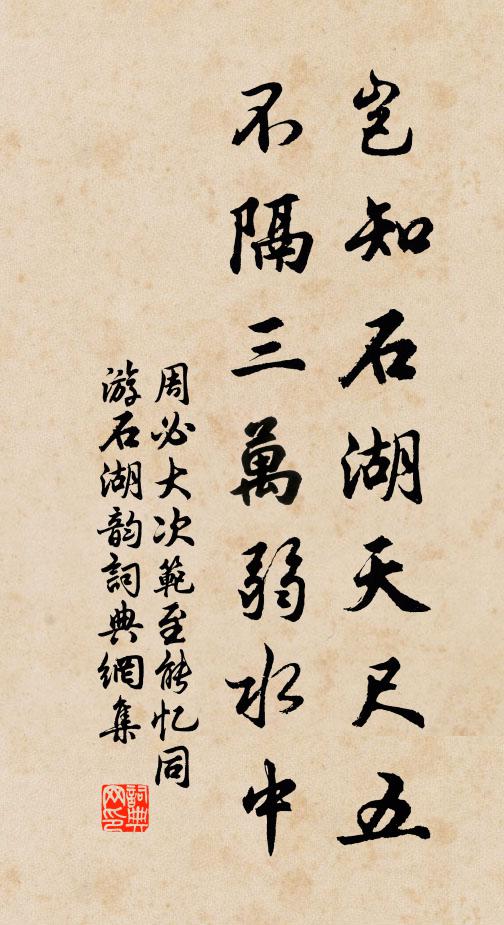 豈知石湖天尺五
不隔三萬弱水中
周必大次範至能忆同
游石湖韵詞典網集
詞典
网印